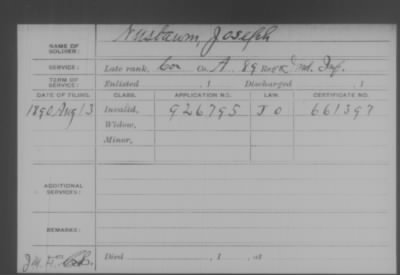 Nusbawm, Joseph
NAME OF SOLDIER:
SERVICE: Late rank, Cor Co. A 89 Reg't Ind. Inf.
TERM OF SERVICE: Enlisted , 1 Discharged , 1
DATE OF FILING. CLASS. APPLICATION NO. LAW. CERTIFICATE NO.
1890 Aug 13 Invalid, 926795 J O 661397
Widow,
Minor,
ADDITIONAL SERVICES:
REMARKS:
Died , 1 , at